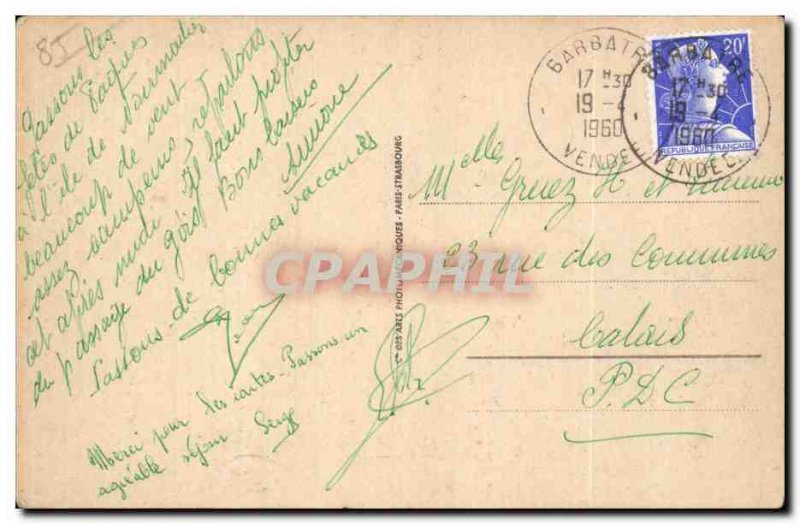 85
Passons les
fêtes de Pâques
à l'île de Noirmoutier
beaucoup de vent
assez campeurs, repartons
cet après midi. Il faut profiter
du passage du gois. Bons baisers
Simone
Passons de bonnes vacances
Merci pour les cartes. Passons un
agréable séjour. Serge
CIE DES ARTS PHOTOMÉCANIQUES - PARIS-STRASBOURG
BARBATRE
17 H 30
19 - 4
1960
VENDEE
20F
REPUBLIQUE FRANÇAISE
BARBATRE
17 H 30
19 - 4
1960
VENDEE
Melle
Gruez H et
23 rue des Communes
Calais
P.D.C
CPAPHIL